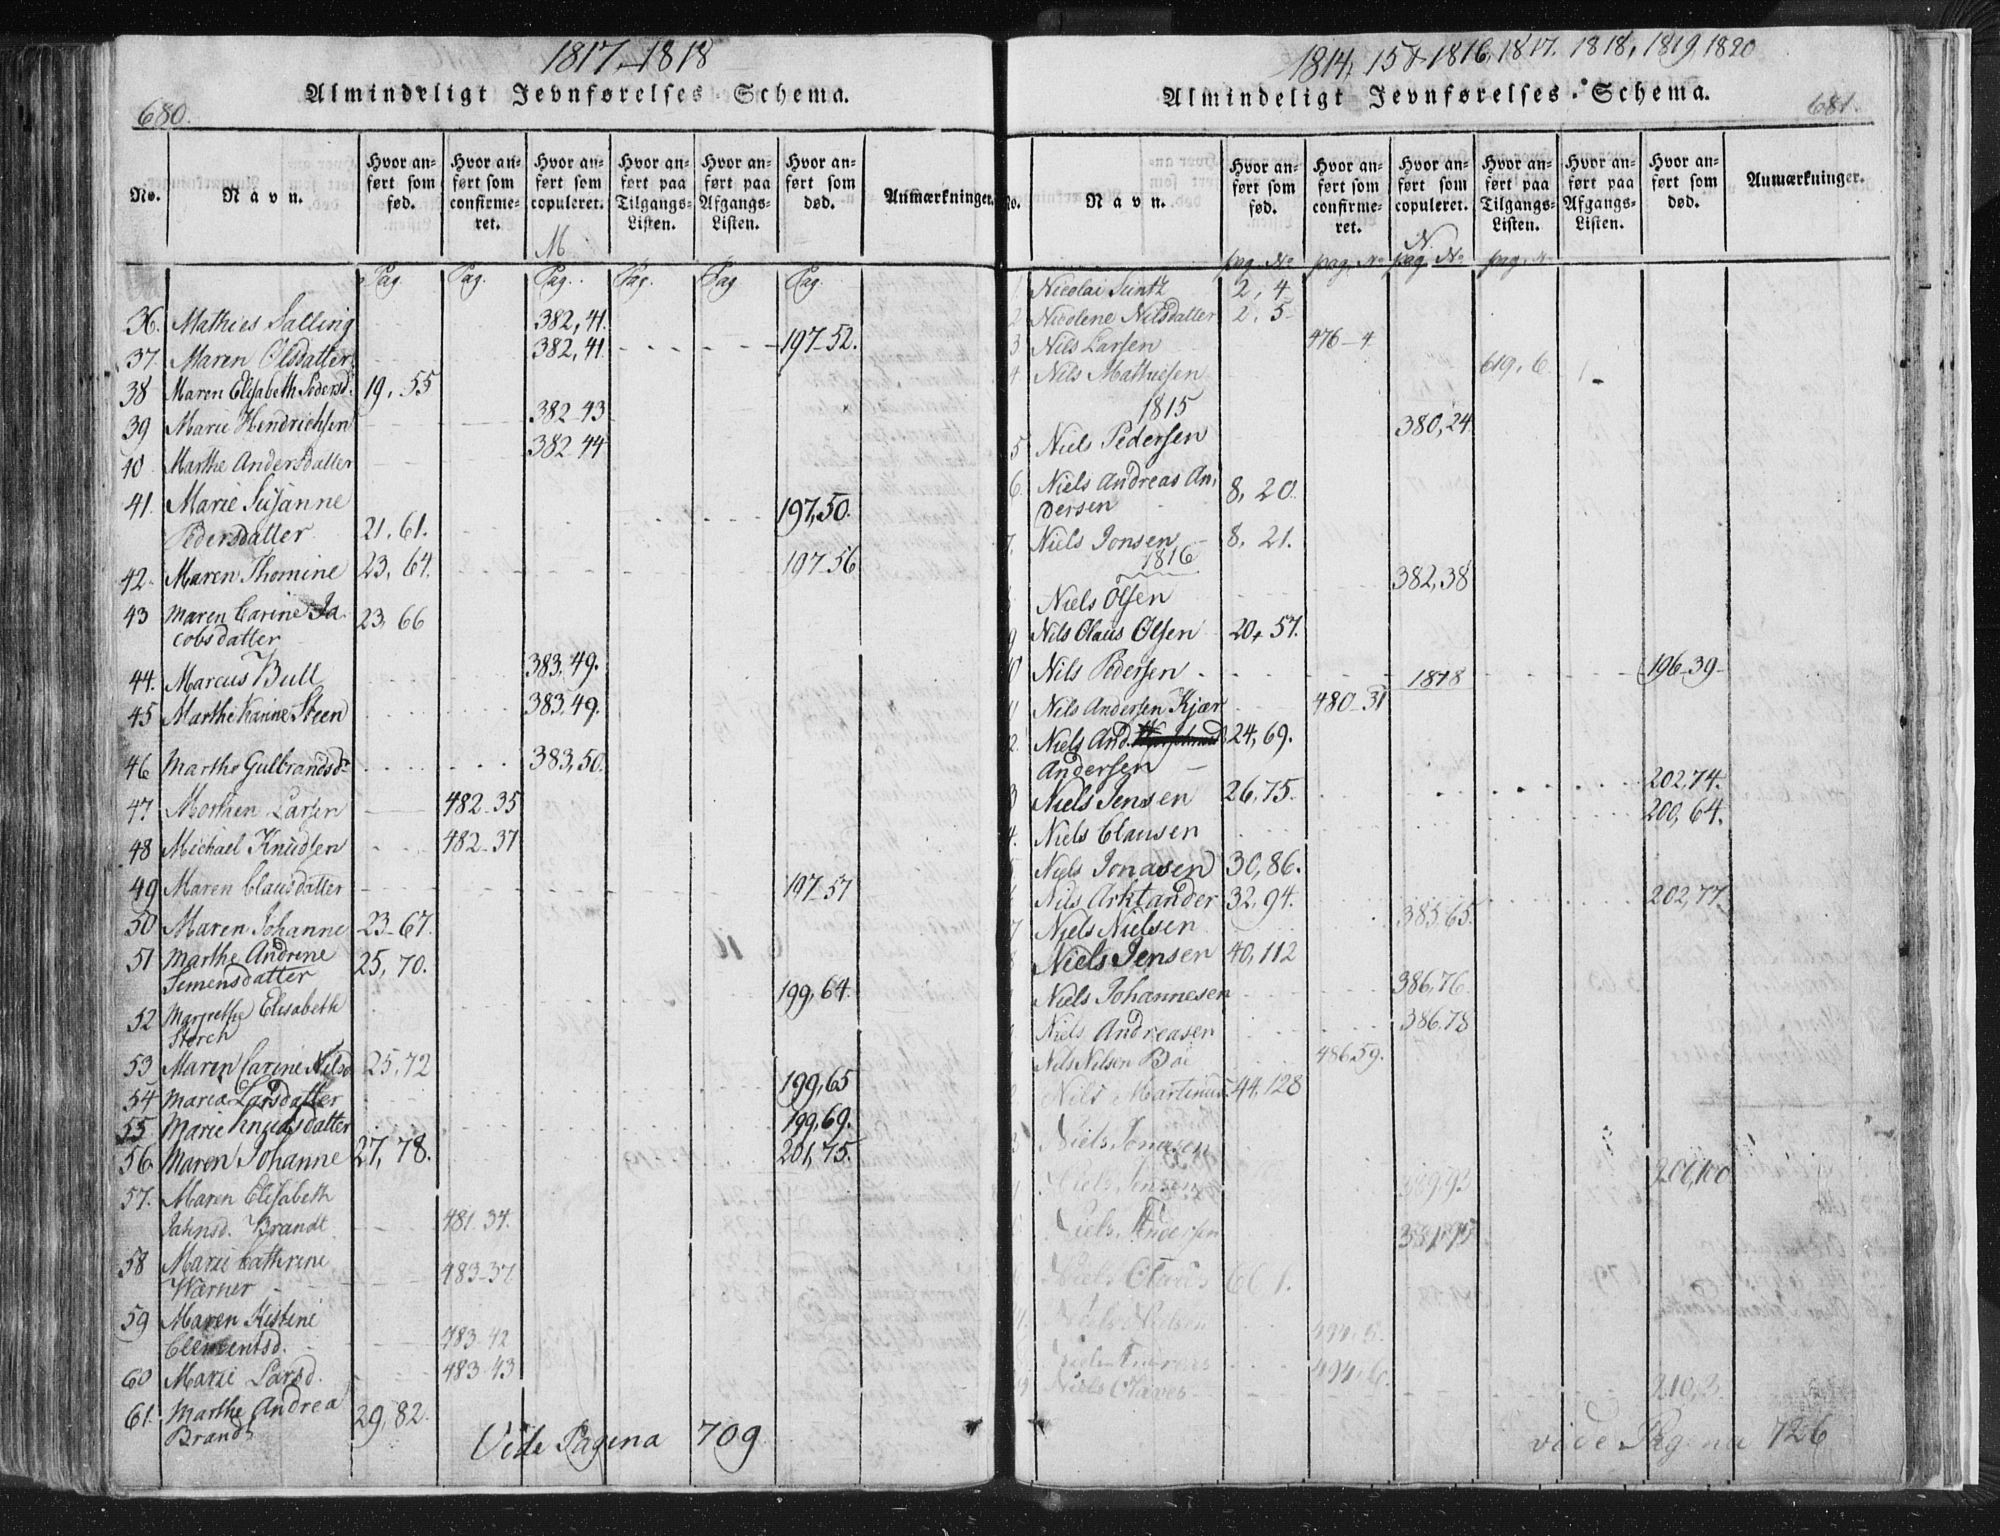 1817, 1818
Almindeligt Jevnførelses-Schema.
680.
No.
Navn.
Hvor anført som fød.
Hvor anført som confirmeret.
Hvor anført som copuleret.
Hvor anført paa Tilgangs-Listen.
Hvor anført paa Afgangs-Listen.
Hvor anført som død.
Anmærkninger.
M
Pag. Pag. Pag. Pag. Pag Pag.
36. Mathies Salling 382, 41.
37. Maren Olsdatter 382, 41 197-52.
38 Maren Elisabeth Pedersd. 19, 55
39 Marie Hendrichsen 382 43
40 Marthe Andersdatter 382 44
41. Marie Susanne
Pedersdatter 21, 61. 197, 50.
42. Maren Thomine 23, 64. 197-56
43 Maren Carine Ja
cobsdatter 23, 66
44. Marcus Bull 383, 49.
45 Marthe Karine Steen 383, 49.
46 Marthe Gulbrandsdr 383, 50.
47 Morthen Larsen 482-35
48 Michael Knudsen 482-37
49 Maren Clausdatter 197-57
50 Maren Johanne 23-67.
51 Marthe Andrine
Simensdatter 25, 70.
52 Margrethe Elisabeth
Storch 199, 64.
53 Maren Carine Nilsd 25, 72
54 Maria Larsdatter 199, 65
55 Marie Knudsdatter 199, 69.
56 Maren Johanne 27, 78. 201, 75.
57. Maren Elisabeth
Jahnsd. Brandt 481-34.
58 Marie Cathrine
Warner 483-37
59 Maren Kistine
Clementsd. 483-42
60 Marie Larsd. 483-43
61. Marthe Andrea
Brandt 29, 82.
Vide Pagina 709
1814, 15 & 1816, 1817. 1818, 1819, 1820
Almindeligt Jevnførelses-Schema.
681.
No.
Navn.
Hvor anført som fød.
Hvor anført som confirmeret.
Hvor anført som copuleret.
Hvor anført paa Tilgangs-Listen.
Hvor anført paa Afgangs-Listen.
Hvor anført som død.
Anmærkninger.
N.
pag. No pag. No pag. No pag. N.
1 Nicolai 2, 4
2 Nicolene Nilsdatter 2, 5
3 Nils Larsen 476-4
4. Nils Mathiesen 619, 6
1815
5 Niels Pedersen 380, 24
6. Niels Andreas An,
dersen 8, 20.
7. Niels Jonsen 8, 21.
1816
Niels Olsen 382, 38
9 Nils Claus Olsen 20, 57.
10 Nils Pedersen 196-39
1818
Nils Andersen Kjær 480-31
2. Niels And.
Andersen 24, 69.
3 Niels Jensen 26, 75. 202, 74.
4. Niels Clausen 200, 64.
Niels Jonasen 30, 86.
Nils Arktander 32, 94. 202, 77
7 Niels Nielsen 385 65
8 Niels Jensen 40, 112
Niels Johannesen 386, 76
Niels Andreasen 386, 78
Nils Nilsen Boe 486 59.
Nils Martinus 44, 128
3 Niels Jonasen
Niels Jensen 200, 100
Niels Andersen
Niels
Niels Nielsen
Niels Andreas 494, 6.
Niels Olaves 210, 3.
vide Pagina 726